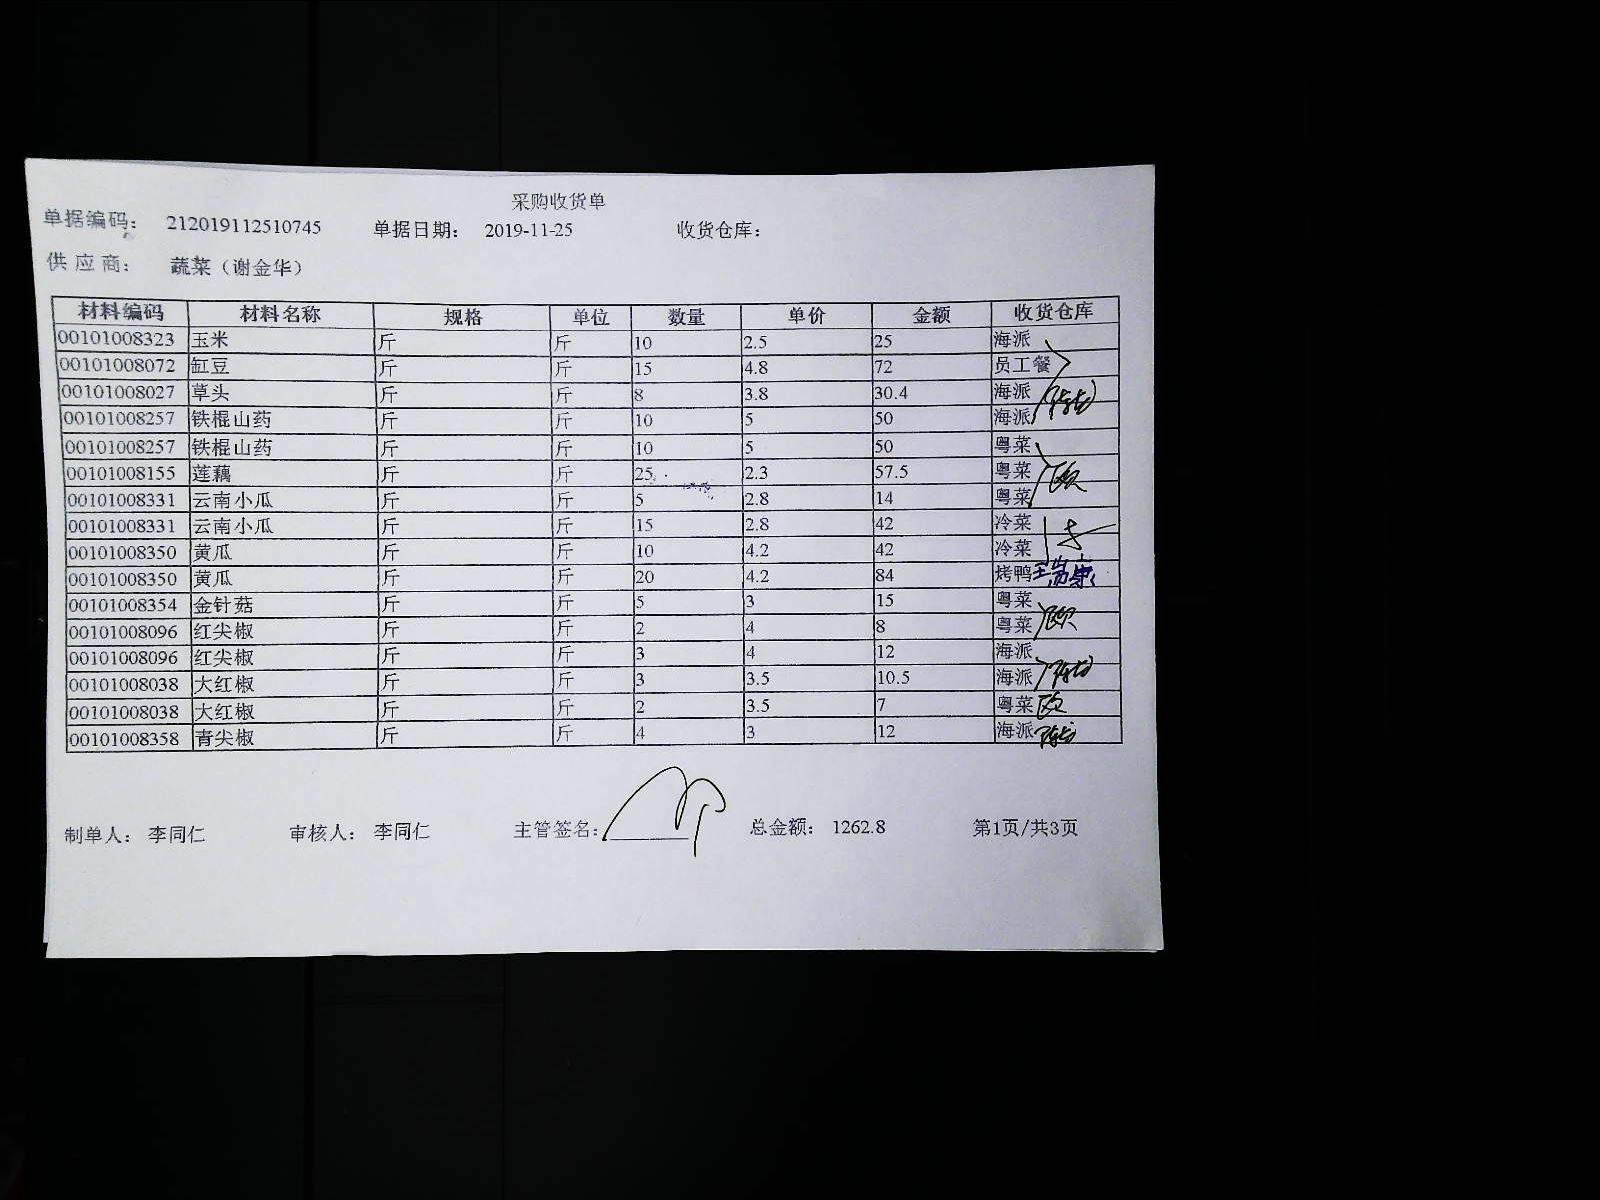 采购收货单
单据编码： 212019112510745 单据日期： 2019-11-25 收货仓库：
供应商： 蔬菜（谢金华）
材料编码 材料名称 规格 单位 数量 单价 金额 收货仓库
00101008323 玉米 斤 斤 10 2.5 25 海派
00101008072 缸豆 斤 斤 15 4.8 72 员工餐
00101008027 草头 斤 斤 8 3.8 30.4 海派
00101008257 铁棍山药 斤 斤 10 5 50 海派
00101008257 铁棍山药 斤 斤 10 5 50 粤菜
00101008155 莲藕 斤 斤 25 2.3 57.5 粤菜
00101008331 云南小瓜 斤 斤 5 2.8 14 粤菜
00101008331 云南小瓜 斤 斤 15 2.8 42 冷菜
00101008350 黄瓜 斤 斤 10 4.2 42 冷菜
00101008350 黄瓜 斤 斤 20 4.2 84 烤鸭
00101008354 金针菇 斤 斤 5 3 15 粤菜
00101008096 红尖椒 斤 斤 2 4 8 粤菜
00101008096 红尖椒 斤 斤 3 4 12 海派
00101008038 大红椒 斤 斤 3 3.5 10.5 海派
00101008038 大红椒 斤 斤 2 3.5 7 粤菜 欧
00101008358 青尖椒 斤 斤 4 3 12 海派
制单人： 李同仁 审核人： 李同仁 主管签名： 总金额： 1262.8 第1页/共3页